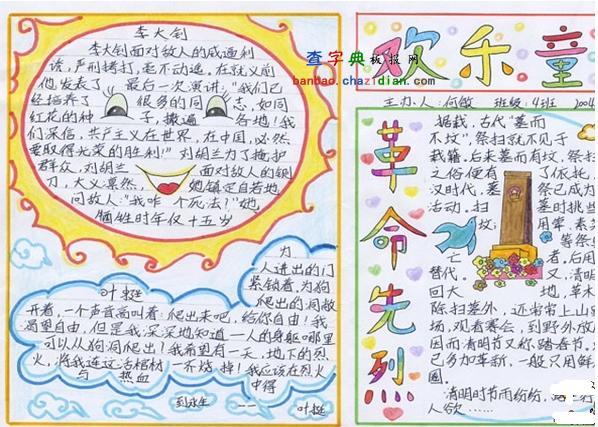 李大钊
李大钊面对敌人的威逼利
诱，严刑拷打，毫不动遥。在就义前
他发表了 最后一次演讲，"我们已
经培养了 很多的同志，如同
红花的种子，撒遍各地！我
们深信，共产主义在世界，在中国，必然
要取得光荣的胜利！"刘胡兰为了掩护
群众，刘胡兰 面对敌人的铡
刀，大义凛然， 她镇定自若地
问敌人："我咋个死法？"她
牺牲时年仅十五岁
为
人进出的门
紧锁着，为狗
爬出的洞敞
叶挺
开着，一个声音高叫着：爬出来吧，给你自由！我
渴望自由，但是我深深地知道——人的身躯哪里
可以从狗洞爬出！我希望有一天，地下的烈
火，将我连这活棺材一齐烧掉！我应该在烈火
与 热血 中得
到永生 —— 叶挺
查字典板报网
banbao.chazidian.com
欢乐童
主办人：何敏 班级：4班 2004
革命先烈
据载，古代"墓而
不坟"，祭扫就不见于
载籍，后来墓而有坟，祭扫
之俗便有 了依托，
汉时代，墓 祭已成为
活动，扫 墓时挑些
用荤、素
亡 等祭
者，后用
替代。 又，清明
回大 地，草木
除扫墓外，还常常上山
场，观看赛会，到野外放
因而清明节又称踏春节，
已多加革新，一般只用鲜
圈。
清明时节雨纷纷，路上行
人欲……